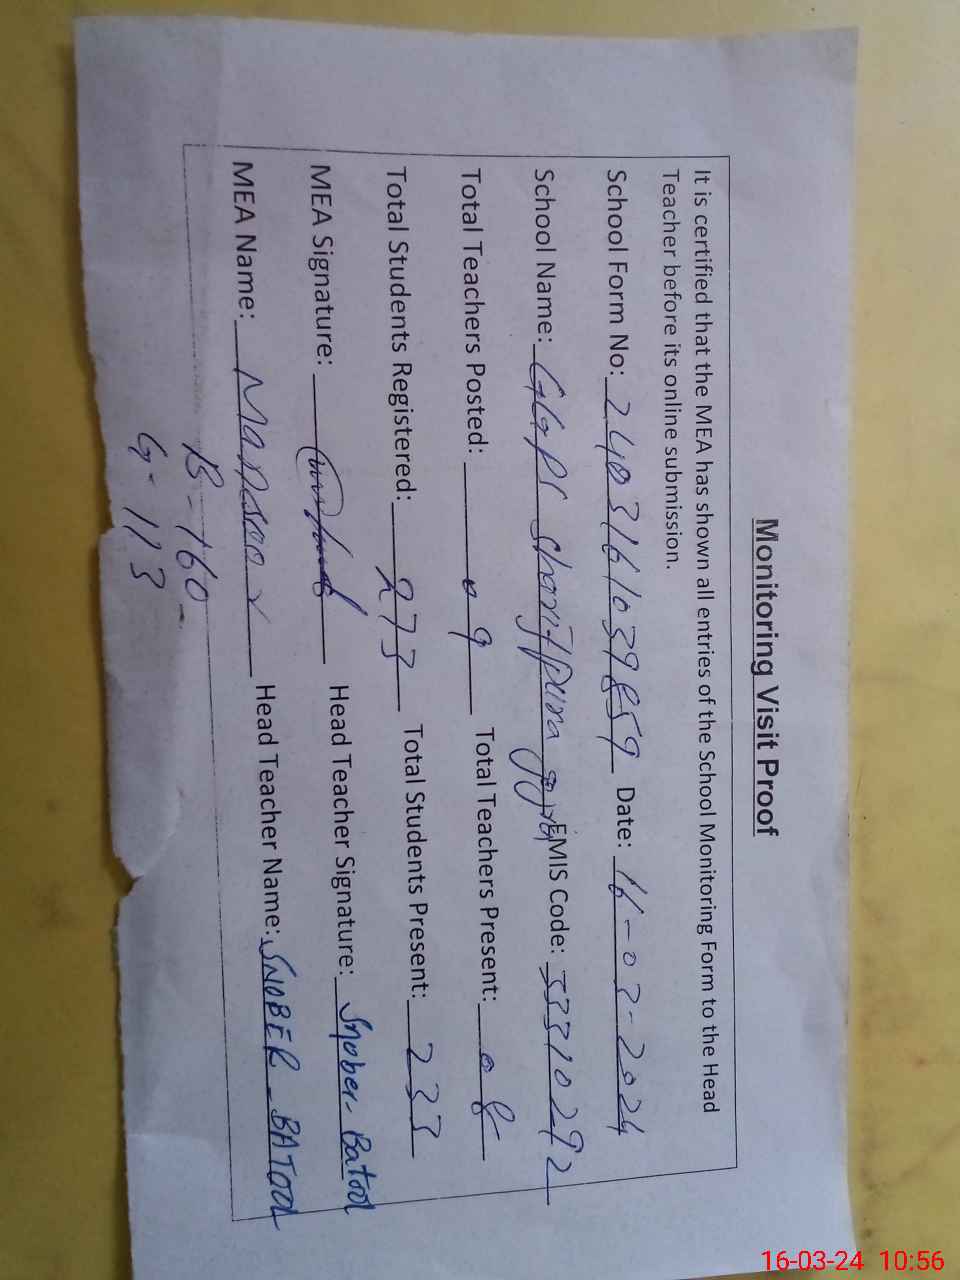 Monitoring Visit Proof
It is certified that the MEA has shown all entries of the School Monitoring Form to the Head
Teacher before its online submission.
School Form No: 2403161039859 Date: 16-03-2024
School Name: GGPS Sharifpura EMIS Code: 33310292
Total Teachers Posted: 09 Total Teachers Present: 08
Total Students Registered: 273 Total Students Present: 233
MEA Signature: Head Teacher Signature: Snober-Batool
MEA Name: Manzoor Head Teacher Name: SNOBER-BATOOL
B-160-
G-113
16-03-24 10:56